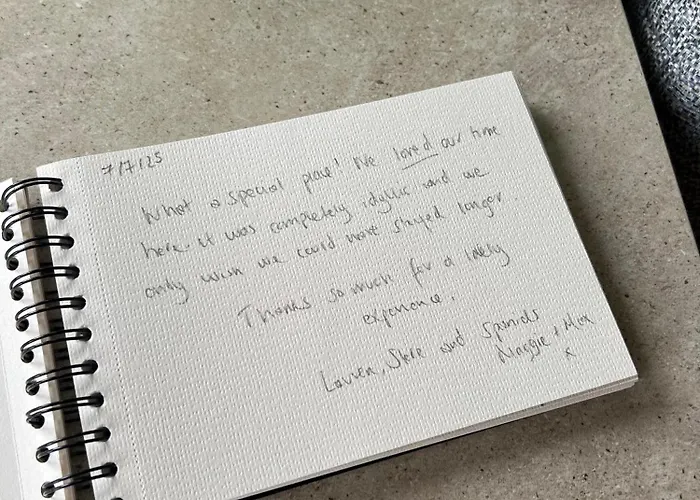 7/7/25
What a special place! We loved our time
here. It was completely idyllic and we
only wish we could have stayed longer.
Thanks so much for a lovely
experience.
Lauren, Steve and Spaniels
Maggie + Max
x